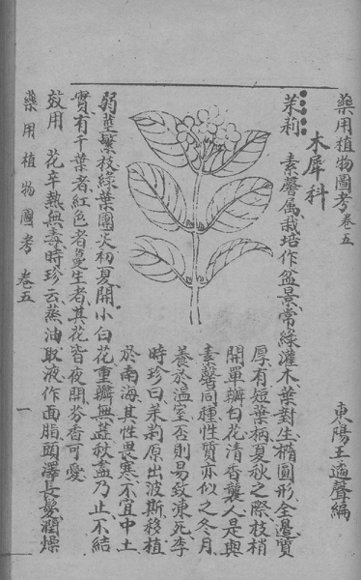 藥用植物圖考卷五
東陽王遹聲編
木犀科
茉莉 素馨属栽培作盆景常緑灌木葉對生橢圓形全邊質
厚有短葉柄夏秋之際枝梢
開單瓣白花清香襲人是與
素馨同種性質亦似之冬月
養於温室否則易致凍死李
時珍曰茉莉原出波斯移植
於南海其性畏寒不宜中土
弱莖繁枝緑葉團尖初夏開小白花重瓣無蕋秋盡乃止不結
實有千葉者紅色者蔓生者其花皆夜開芬香可愛
效用 花辛熱無毒時珍云蒸油取液作面脂頭澤長髮潤燥
藥用植物圖考 卷五 一